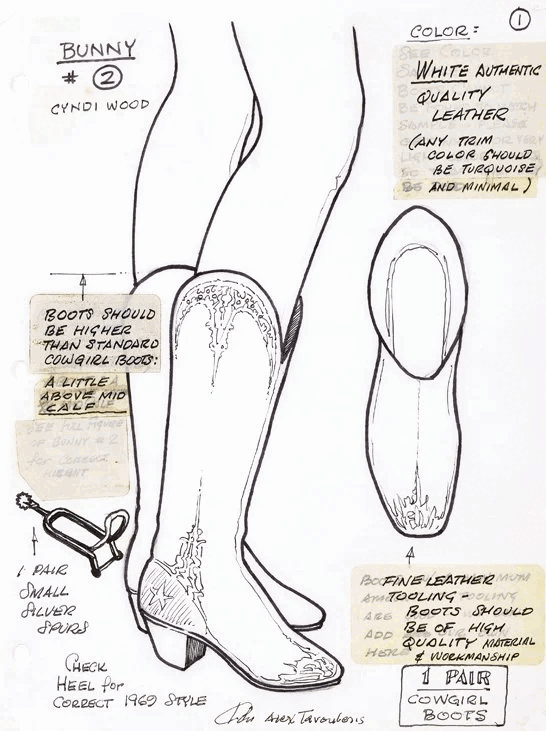 1
BUNNY
# 2
CYNDI WOOD
COLOR:
WHITE AUTHENTIC
QUALITY
LEATHER
(ANY TRIM
COLOR SHOULD
BE TURQUOISE
AND MINIMAL)
BOOTS SHOULD
BE HIGHER
THAN STANDARD
COWGIRL BOOTS:
A LITTLE
ABOVE MID
CALF
SEE FULL FIGURE
OF BUNNY # 2
for CORRECT
HEIGHT
1 PAIR
SMALL
SILVER
SPURS
CHECK
HEEL for
CORRECT 1969 STYLE
FINE LEATHER
TOOLING -
BOOTS SHOULD
BE OF HIGH
QUALITY MATERIAL
& WORKMANSHIP
1 PAIR
COWGIRL
BOOTS
Alex Tavoularis